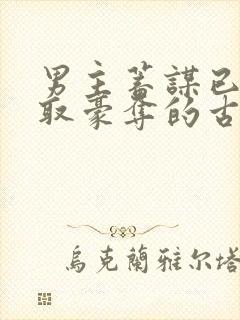 男主蓄謀已
取豪奪的古
烏克蘭雅尔塔